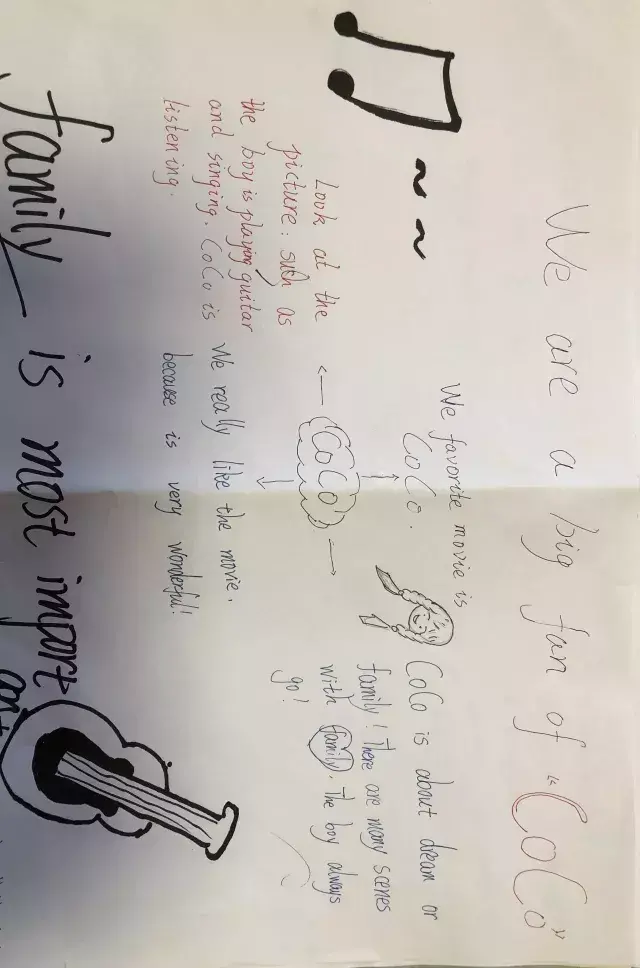 We are a big fan of "CoCo"
We favorite movie is
CoCo.
Look at the
picture: such as
the boy is playing guitar
and singing. CoCo is
listening.
CoCo
CoCo is about dream or
family! There are many scenes
with family. the boy always
go!
We really like the movie.
because is very wonderful!
family is most import
ant